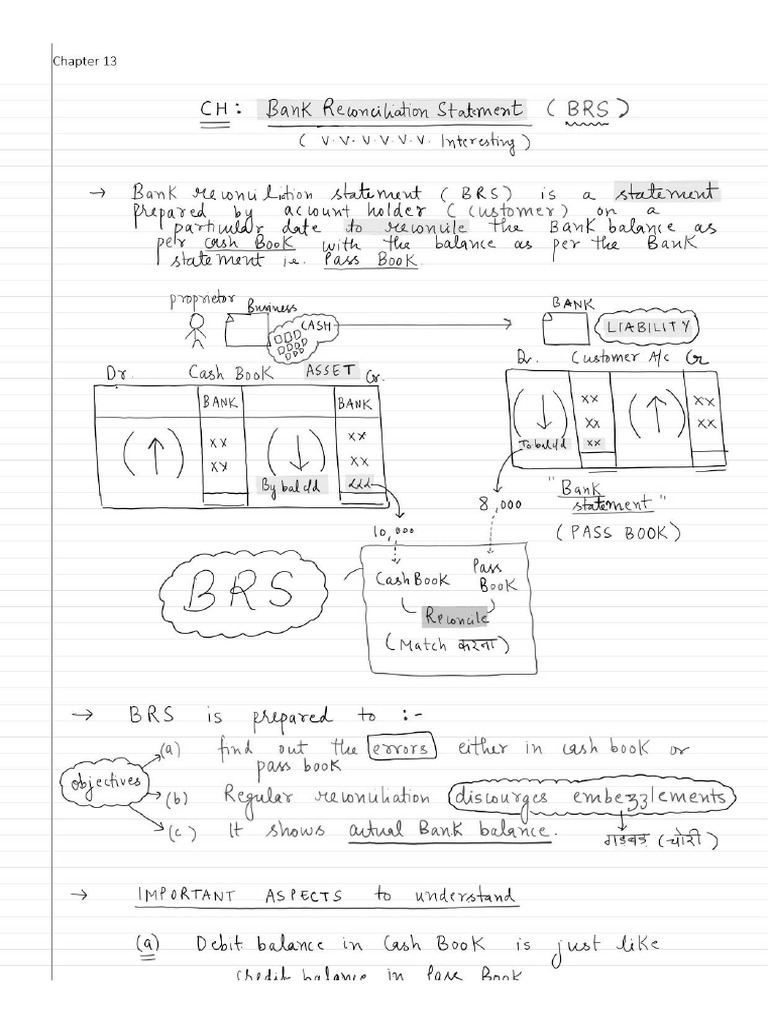 Chapter 13
CH: Bank Reconciliation Statement (BRS)
( V. V. V. V. V. V. Interesting )
→ Bank reconcilition statement (BRS) is a statement
prepared by acount holder (customer) on a
particular date to reconcile the Bank balance as
per cash Book with the balance as per the Bank
statement i.e. Pass Book.
proprietor Business BANK
CASH LIABILITY
Dr. Cash Book ASSET Cr.
Dr. Customer A/c Cr
BANK BANK
(↑) xx (↓) xx
xx xx
By bal c/d
(↓) xx (↑) xx
xx xx
To bal c/d xx
10,000 8,000
"Bank
statement"
(PASS BOOK)
BRS
Cash Book Pass
Book
Reconcile
(Match करना)
→ BRS is prepared to :-
objectives
(a) find out the errors either in cash book or
pass book
(b) Regular reconciliation discourges embezzlements
गडबड (चोरी)
(c) It shows actual Bank balance.
→ IMPORTANT ASPECTS to understand
(a) Debit balance in Cash Book is just like
credit balance in Pass Book